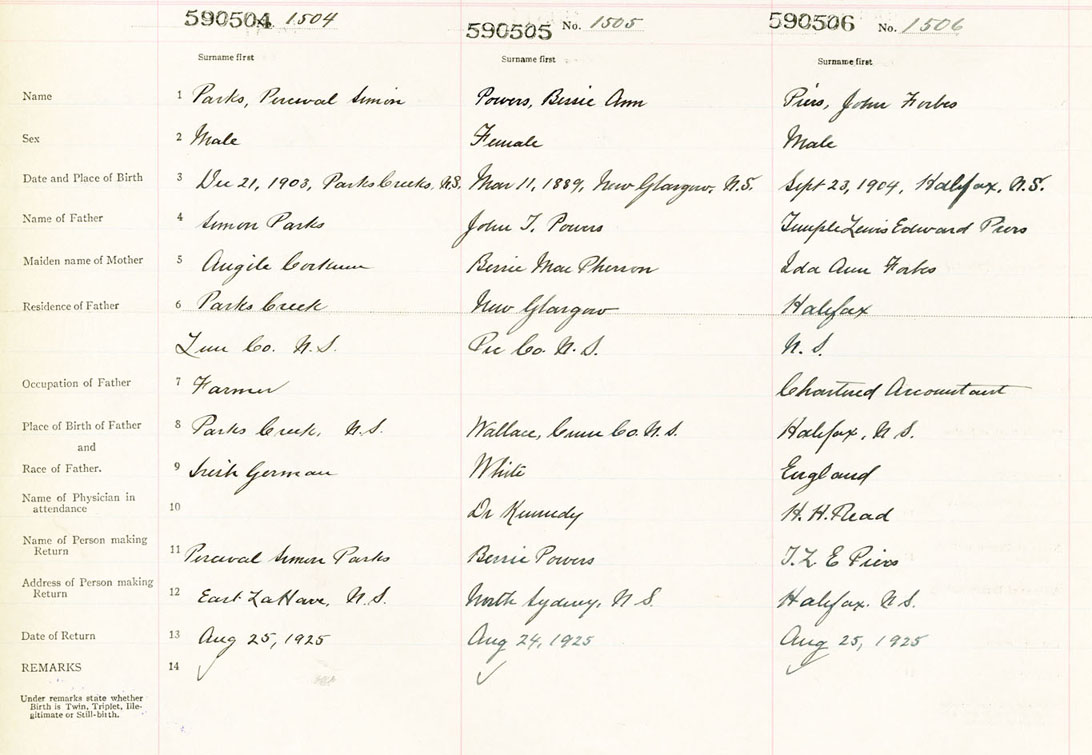 590504 No. 1504 590505 No. 1505 590506 No. 1506
Surname first Surname first Surname first
Name 1 Parks, Percival Simon Powers, Bessie Ann Piers, John Forbes
Sex 2 Male Female Male
Date and Place of Birth 3 Dec 21, 1903, Parks Creek, N.S. Mar 11, 1889, New Glasgow, N.S. Sept 23, 1904, Halifax, N.S.
Name of Father 4 Simon Parks John T. Powers Temple Lewis Edward Piers
Maiden name of Mother 5 Corkum Bessie MacPherson Ida Ann Forbes
Residence of Father 6 Parks Creek New Glasgow Halifax
Lun Co. N.S. Pic Co. N.S. N.S.
Occupation of Father 7 Farmer Chartered Accountant
Place of Birth of Father 8 Parks Creek, N.S. Wallace, Cum Co. N.S. Halifax, N.S.
and
Race of Father. 9 Irish German White England
Name of Physician in
attendance 10 Dr Kennedy H. H. Read
Name of Person making
Return 11 Percival Simon Parks Bessie Powers T. L E Piers
Address of Person making
Return 12 East LaHave, N.S. North Sydney, N S. Halifax. N.S.
Date of Return 13 Aug 25, 1925 Aug 24, 1925 Aug 25, 1925
REMARKS 14
Under remarks state whether
Birth is Twin, Triplet, Ille-
gitimate or Still-birth.